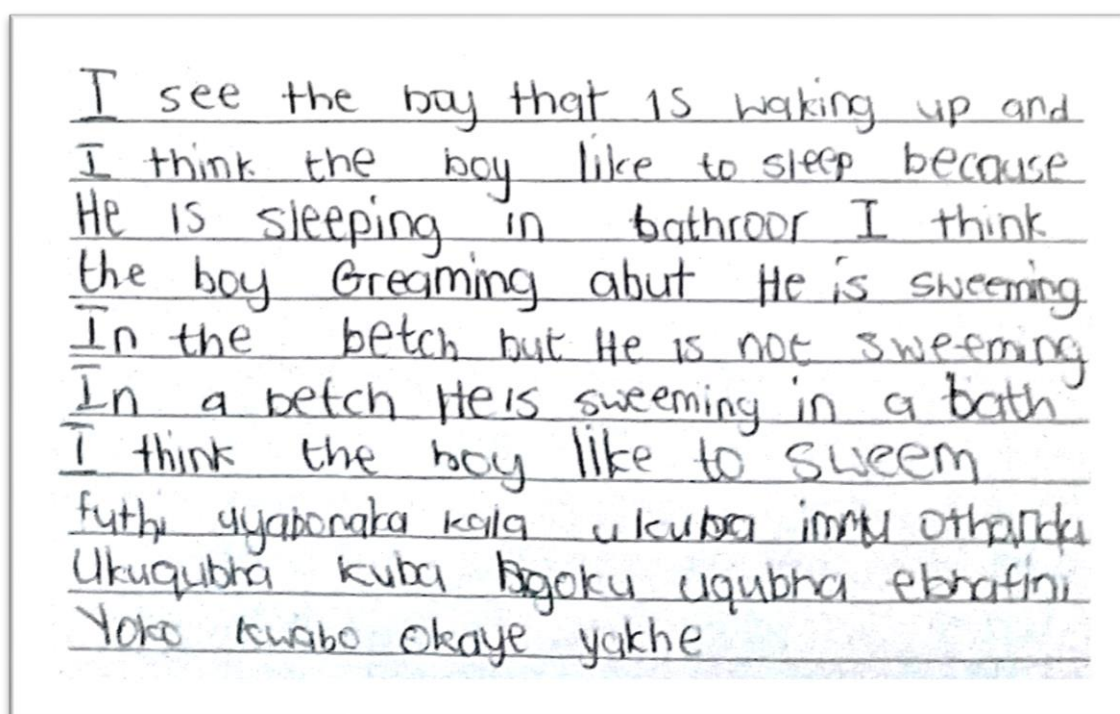 I see the boy that is waking up and
I think the boy like to sleep because
He is sleeping in bathroor I think
the boy Greaming abut He is sweeming
In the betch but He is not sweeming
In a betch He is sweeming in a bath
I think the boy like to sweem
futhi uyabonaka kala ukuba
Ukuqubha kuba Ngoku uqubha ebhafini
Yoko kwabo okaye yakhe